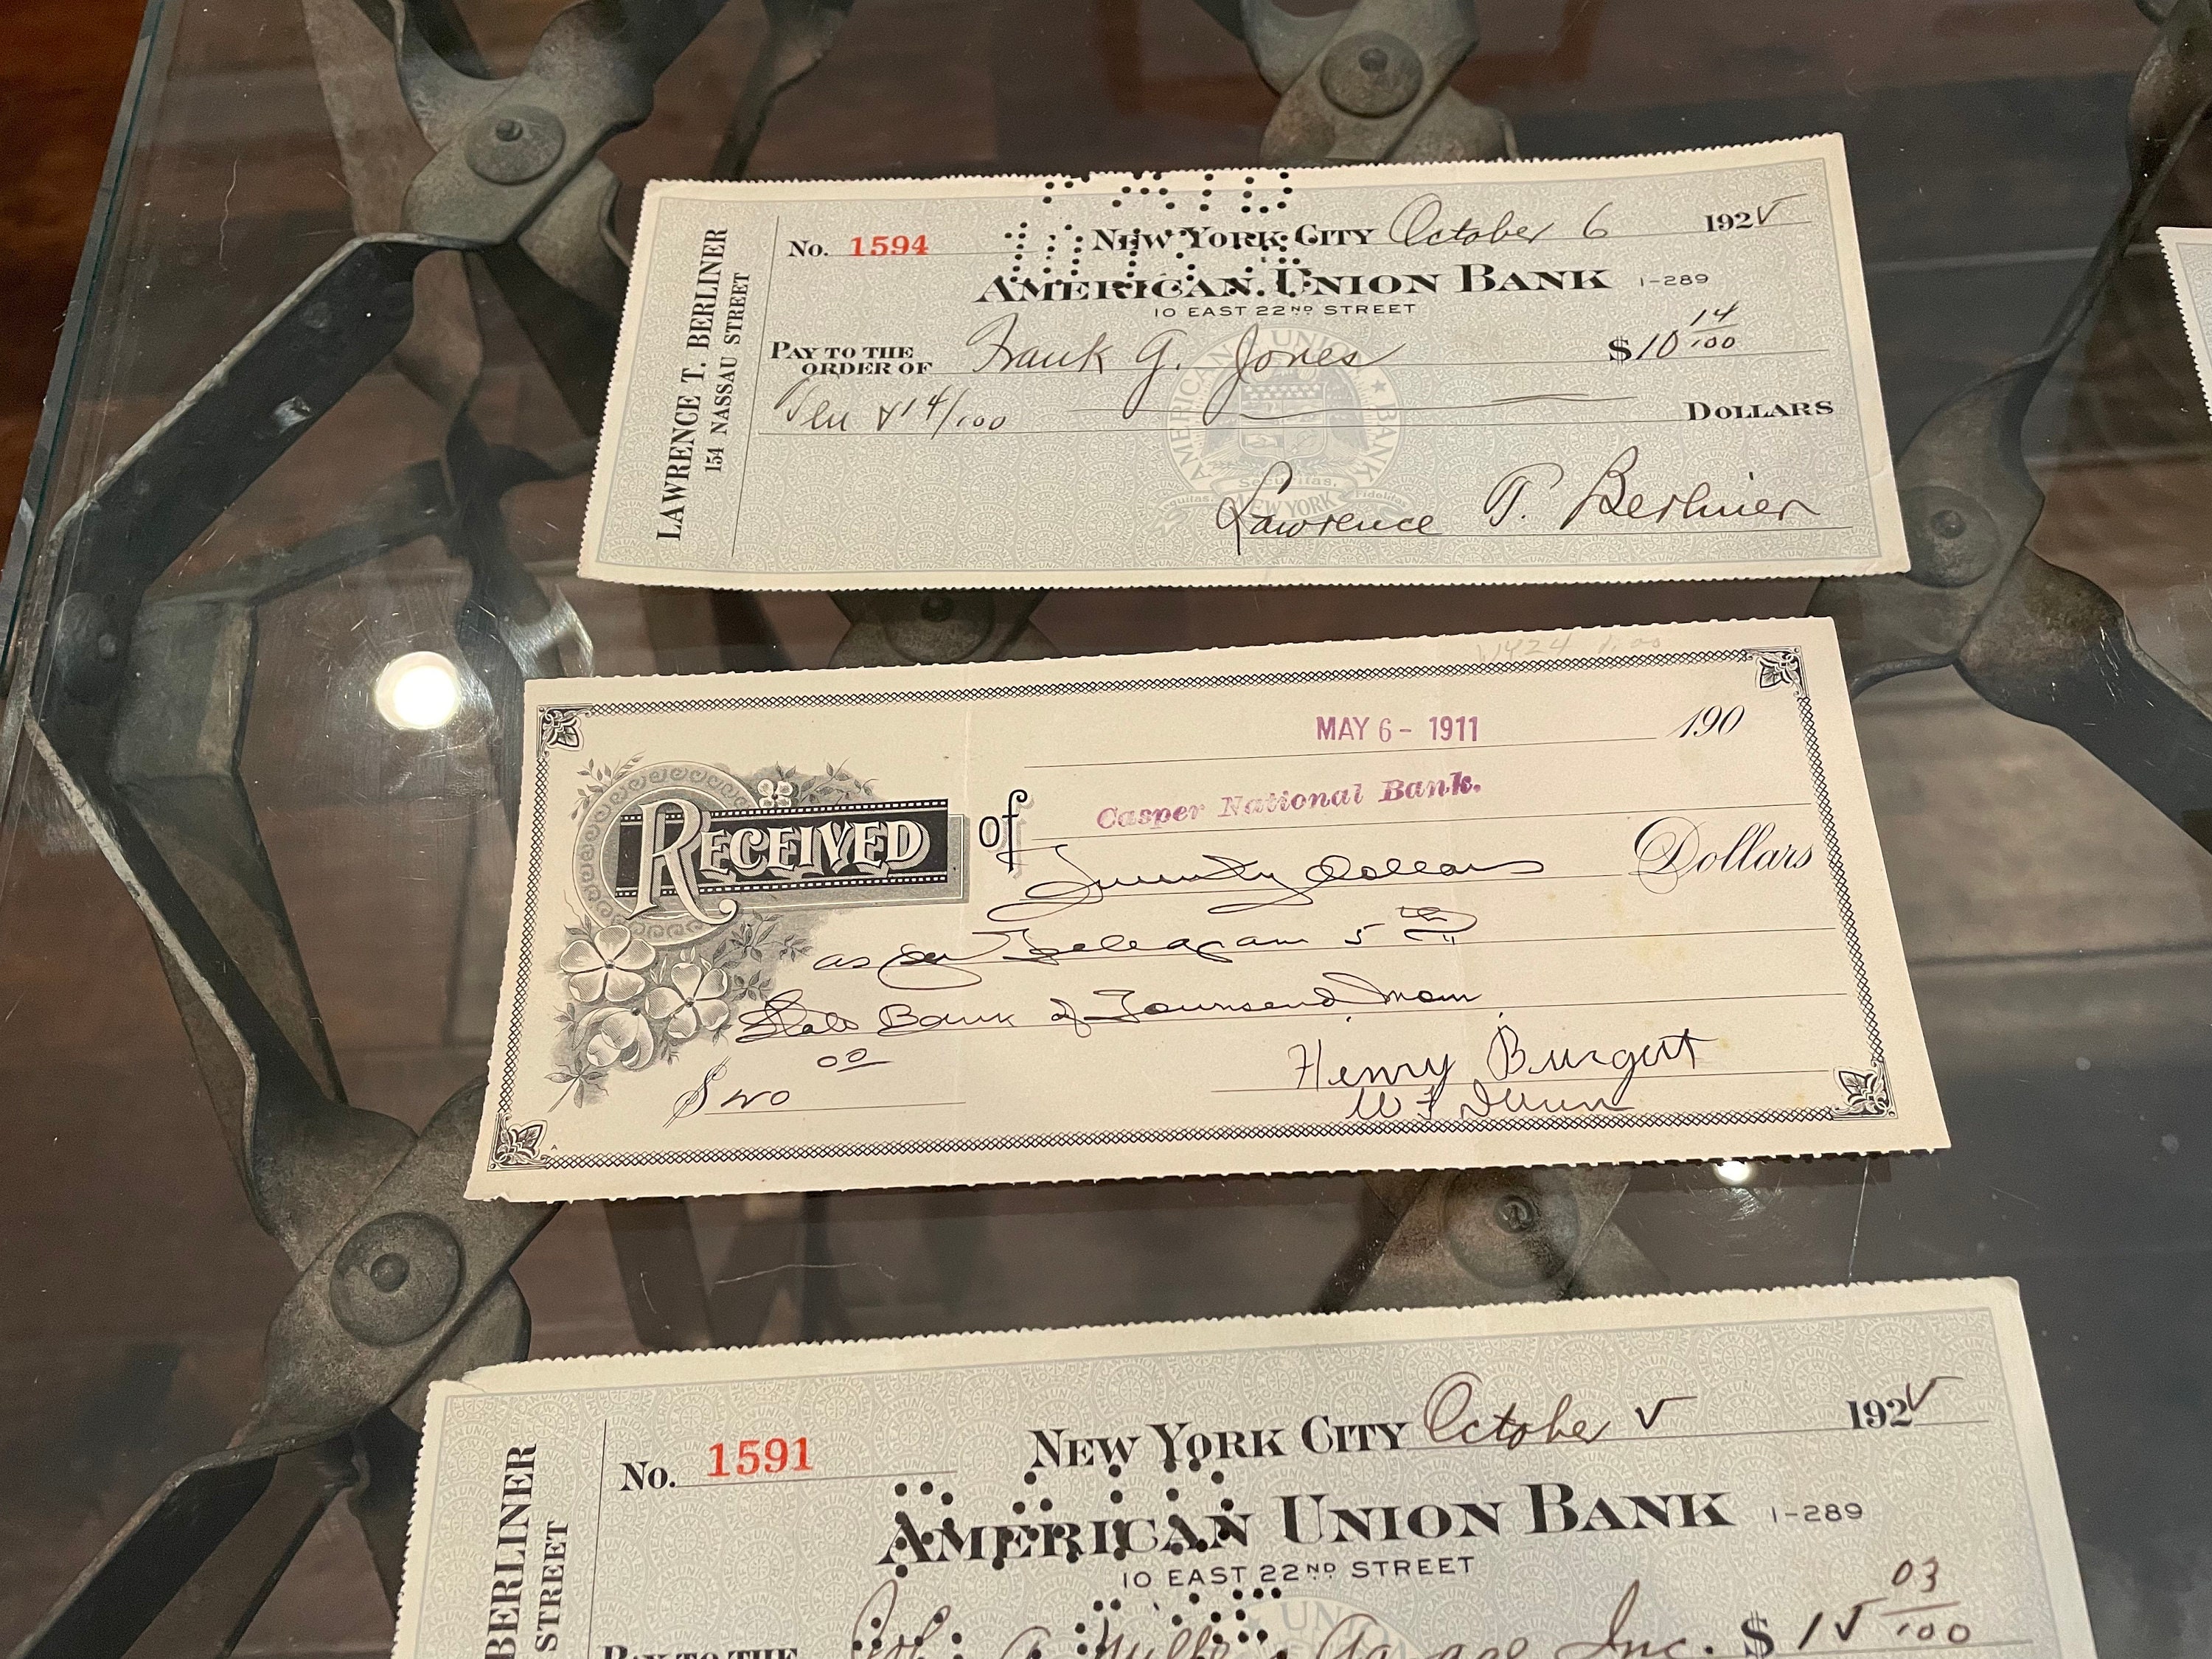 No. 1594 NEW YORK CITY October 6 1925
AMERICAN UNION BANK 1-289
10 EAST 22ND STREET
PAY TO THE ORDER OF Frank G. Jones $10 14/100
Ten & 14/100 DOLLARS
Lawrence T. Berliner
LAWRENCE T. BERLINER
154 NASSAU STREET
AMERICAN UNION BANK
Securitas,
NEW YORK
Fidelitas
MAY 6 - 1911 190
RECEIVED of Casper National Bank.
Twenty Dollars Dollars
as per Telegram 5th
State Bank of Townsend, Mon
$20 00
Henry Burgert
No. 1591 NEW YORK CITY October 5 1925
AMERICAN UNION BANK 1-289
10 EAST 22ND STREET
PAY TO THE Garage Inc. $15 03/100
BERLINER
STREET